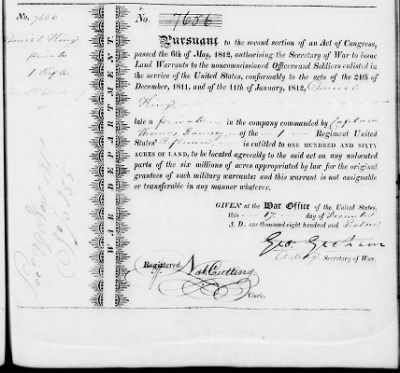 No. 7656
Daniel King
private
No. 7656
WAR DEPARTMENT
Pursuant to the second section of an Act of Congress,
passed the 6th of May, 1812, authorising the Secretary of War to issue
Land Warrants to the noncommissioned Officers and Soldiers enlisted in
the service of the United States, conformably to the acts of the 24th of
December, 1811, and of the 11th of January, 1812, Daniel
King
late a private in the company commanded by Captain
Thomas Ramsey of the 1 Regiment United
States' Riflemen is entitled to ONE HUNDRED AND SIXTY
ACRES OF LAND, to be located agreeably to the said act on any unlocated
parts of the six millions of acres appropriated by law for the original
grantees of such military warrants; and this warrant is not assignable
or transferable in any manner whatever.
GIVEN at the War Office of the United States,
this 17 day of December
A. D. one thousand eight hundred and
Geo Graham
Secretary of War.
Registered Nat Cutting
Clerk.